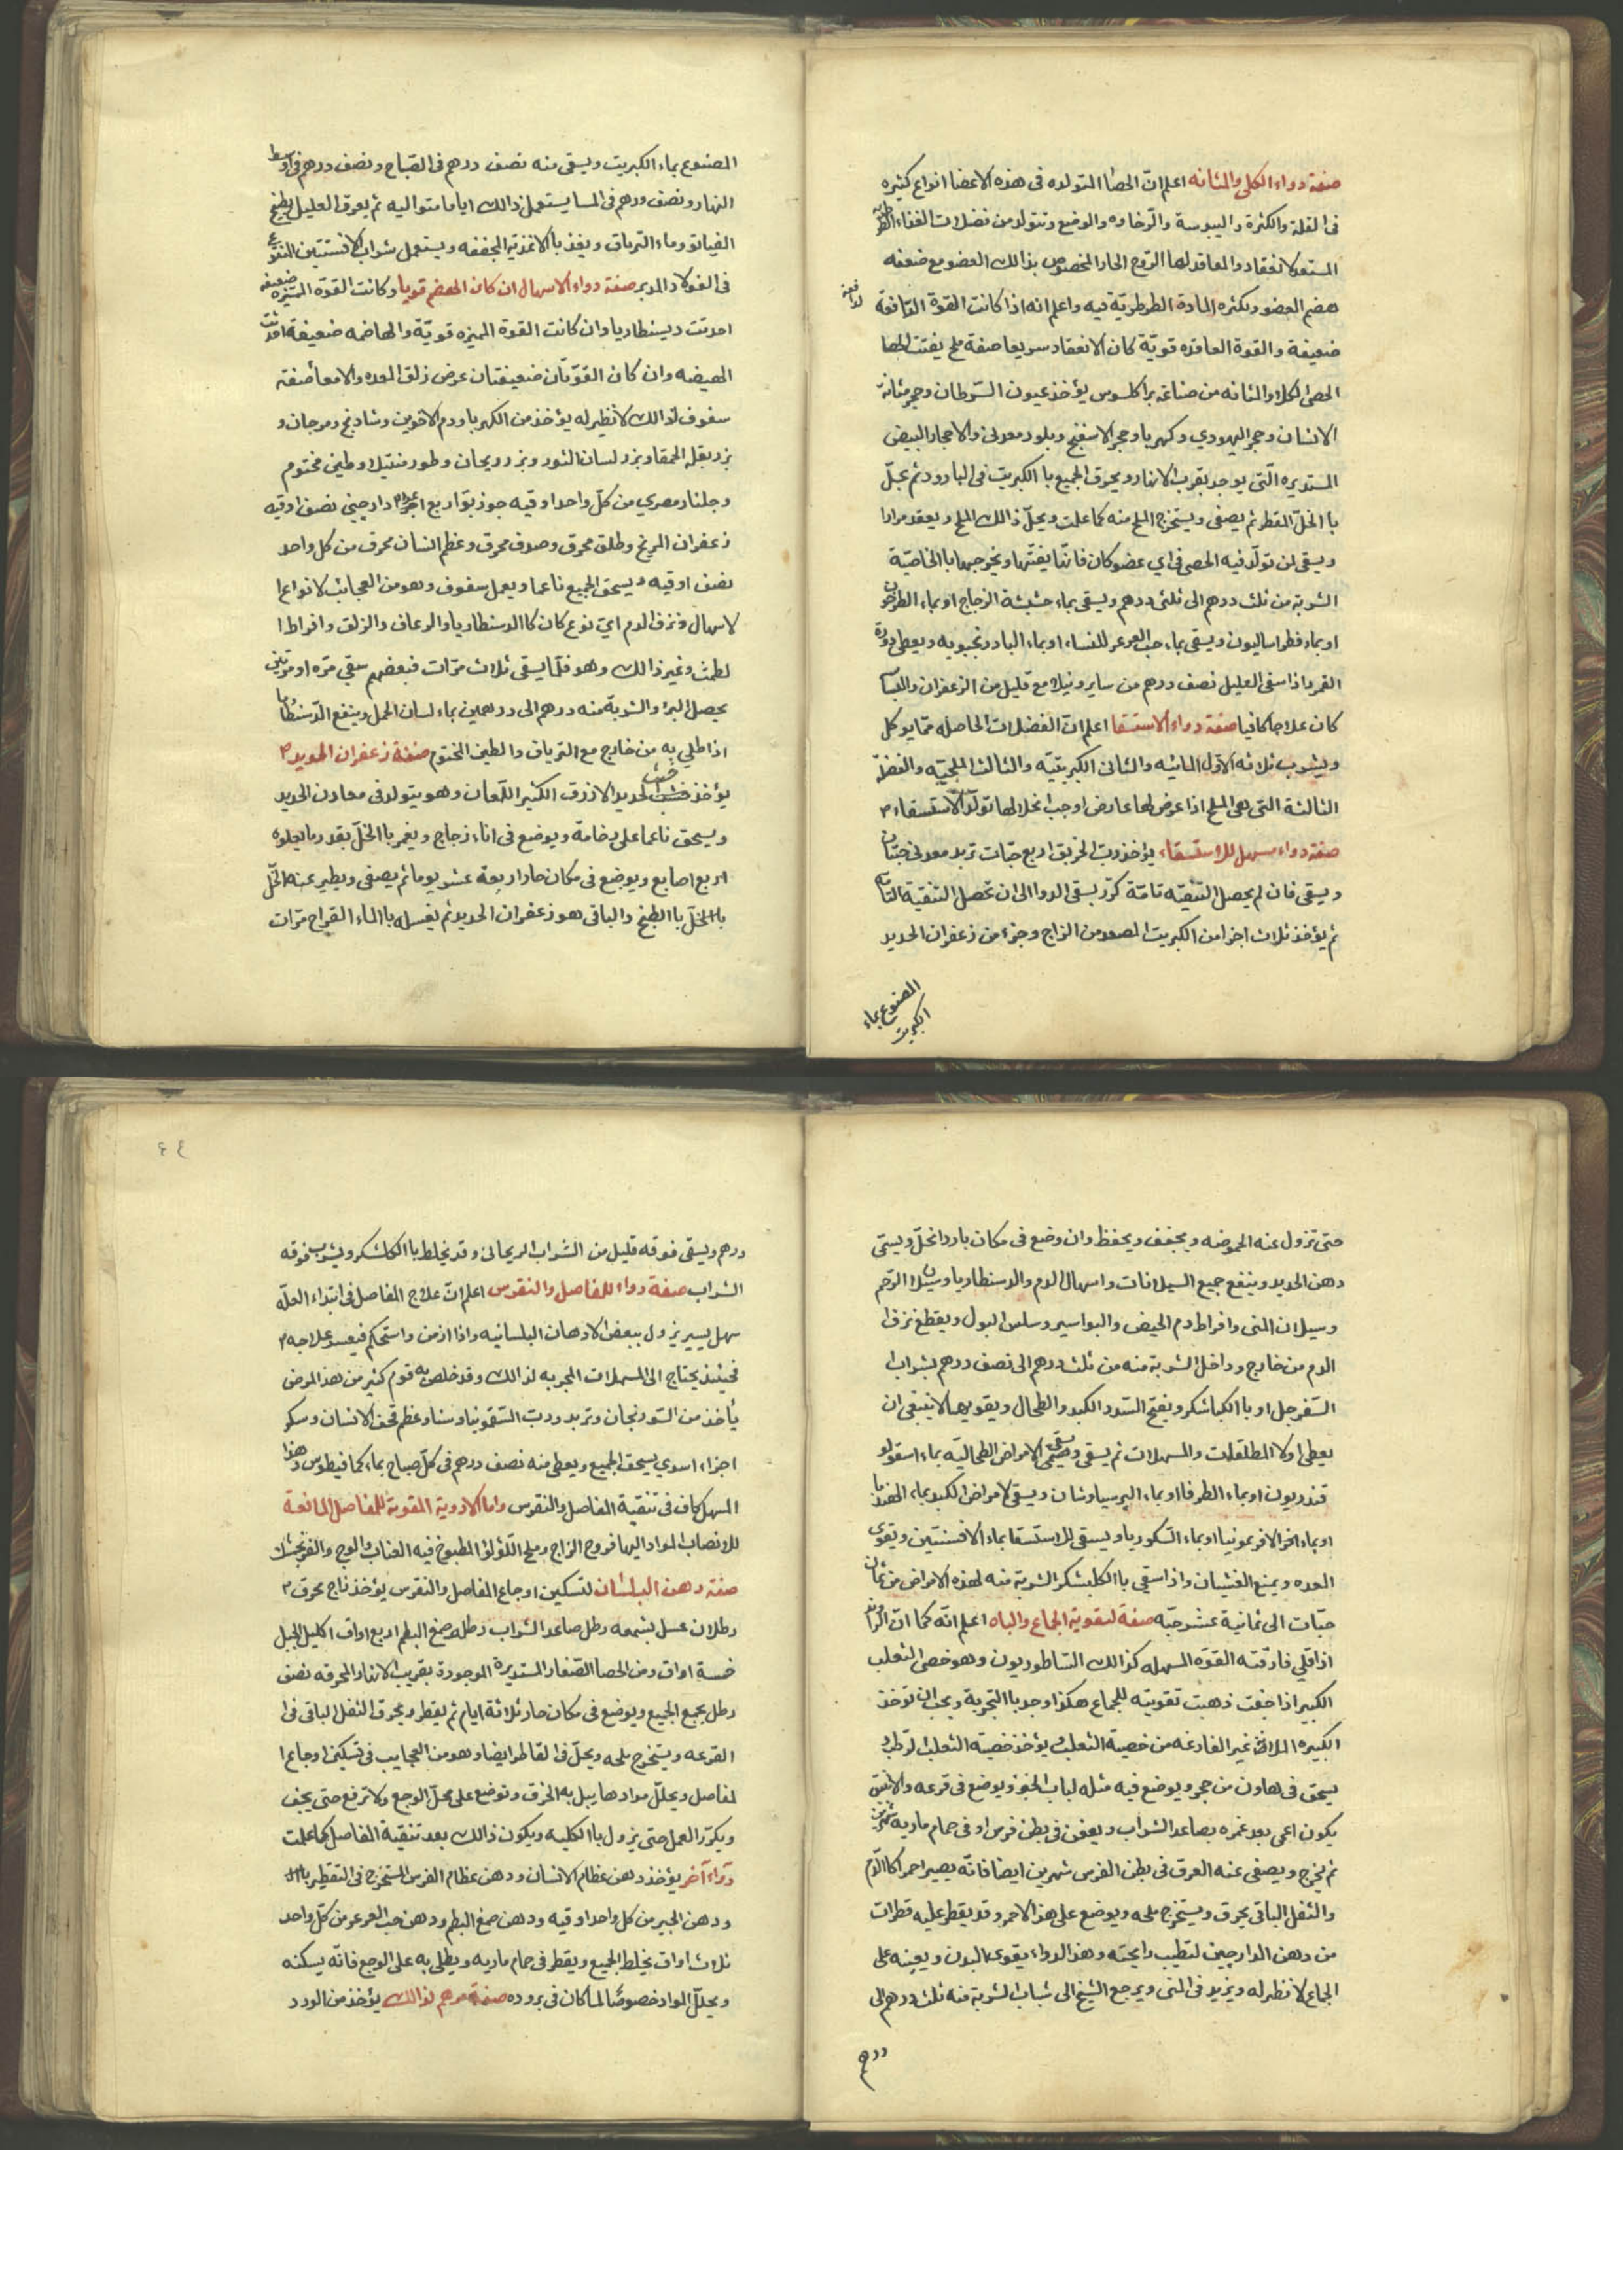 صفة دواء الكلى والمثانه اعلم ان الحصا المتولده فى هذه الاعضا انواع كثيره
فى القلة والكثرة واليبوسة والرخاوه والوضع وتتولد من فضلات الغذاء الطرطريه
المستعد لانعقاد والعاقد لها الروح الحار المخصوص بذالك العضو مع ضعفه
هضم العضو وبكثره المادة الطرطريّة فيه واعلم انه اذا كانت القوة الدافعة
ضعيفة والقوة العاقده قويّة كان الانعقاد سريعا صفة ملح يفتت لحا
الحصى الكلا والمثانه من صناعة براكلسوس يؤخذ عيون السّرطان وحجر مثانة
الانسان وحجر اليهودي وكهربا وحجر الاسفنج وبلور معدنى والاحجار البيض
المستديره الّتى يوجد بقرب الانهار ويحرق الجميع با الكبريت فى البارود ثم يحلّ
با الخلّ المقطر ثم يصفى ويستخرج الملح منه كما علمت ويحلّ ذالك الملح ويعقد مرارا
ويسقى لمن تولّد فيه الحصى فى اي عضو كان فانّها يفتّتها ويخرجها با الخاصيّة
الشربة من ثلث درهم الى ثلثى درهم ويسقى بماء حشيشة الزجاج او بماء الطرخون
او بماء فطراساليون ويسقى بماء حب العرعر للنساء او بماء البادرنجبويه ويعطى دورة
القمر واذا سقى العليل نصف درهم من سايرونيلا مع قليل من الزعفران واللبان
كان علاجا كافيا صفة دواء الاستسقا اعلم ان الفضلات الحاصله ممّا يوكل
ويشرب ثلاثه الاوّل المائيه والثانى الكبريتيّه والثالث الملحيّه والفضلة
الثالثة التى هى الملح اذا عرض لها عارض اوجب انحلالها تولّد الاستسقاء
صفة دواء مسهل للاستسقاء يؤخذ ربّ الخربق اربع حبّات تربد معدنى حبّتان
ويسقى فان لم يحصل التنقيّه تامّة كرّر بسقى الدوا الى ان تحصل التنقيّة التامّه
ثم يؤخذ ثلاث اجزا من الكبريت المصعد من الزاج وجزء من زعفران الحديد
المصنوع بماء
الكبريت
المصنوع بماء الكبريت ويسقى منه نصف درهم فى الصّباح ونصف درهم فى اوسط
النهار ونصف درهم فى المسا يستعمل ذالك اياما متواليه ثم يعرق العليل بطبخ
القيانو وماء الترياق ويغذ با الاغذية المجففه ويستعمل شراب الافسنتين المنقوع
فى الفولاد المدبر صفة دواء الاسهال ان كان الهضم قويا وكانت القوة المميزه ضعيفه
احدثت ديسنطاريا وان كانت القوة المميزه قويّة والهاضمه ضعيفة احدثت
الهيضه وان كان القوّتان ضعيفتان عرض زلق المعده والامعا صفة
سفوف لذالك لا نظير له يؤخذ من الكهربا ودم الاخوين وشادنج ومرجان و
بزر بقله الحمقا وبزر لسان الثور وبزر ريحان وطورمنتيلا وطين مختوم
وجلنار مصري من كلّ واحد اوقيه جوز بوّا اربع اعداد دارچينى نصف اوقيه
زعفران المريخ وطلق محرق وصدف محرق وعظم انسان محرق من كل واحد
نصف اوقيه ويسحق الجميع ناعما ويعمل سفوف وهو من العجائب لانواع ا
لاسهال ونزف الدم اي نوع كان كا الدسنطاريا والرعاف والزلق وافراط ا
لطمث وغير ذالك وهو قلّما يسقى ثلاث مرّات فبعضهم سقى مرّه او مرّتين
يحصل البرا والشربة منه درهم الى درهمين بماء لسان الحمل وينفع الدّسنطاريا
اذا طلي به من خارج مع الترياق والطين المختوم صفة زعفران الحديد
يؤخذ خبث الحديد الازرق الكثير اللّمعان وهو يتولد فى معادن الحديد
ويسحق ناعما على رخامة ويوضع فى اناء زجاج ويغمر با الخلّ بقدر ما يعلوه
اربع اصابع ويوضع فى مكان حار اربعة عشر يوما ثم يصفى ويطير عنه الخلّ
با الخلّ با الطبخ والباقى هو زعفران الحديد ثم يغسله با الماء القراح مرّات
حتى تزول عنه الحموضه ويجفف ويحفظ وان وضع فى مكان بارد انحلّ ويسمّى
دهن الحديد وينفع جميع السيلانات واسهال الدم والدسنطاريا وسيلان الرّحم
وسيلان المنى وافراط دم الحيض والبواسير وسلس البول ويقطع نزف ا
لدم من خارج وداخل الشربة منه من ثلث درهم الى نصف درهم بشراب
السّفرجل او با الكباشكر ويفتح السّدد الكبد والطحال ويقويهما لا ينبغى ان
يعطى اولا المطلقلات والمسهلات ثم يسقى ويسقى لامراض الطحاليّه بماء اسقولو
قندريون او بماء الطرفا او بماء البرسياوشان ويسقى لامراض الكبد بماء الهندبا
او بماء الافريمونيا او بماء السّكوربا ويسقى للاستسقا بماء الافسنتين ويقوى
المعده ويمنع الغثيان واذا سقي با الكلبشكر الشربة منه لهذه الامراض من ثمان
حبّات الى ثمانية عشر حبّه صفة لتقوية الجماع والباه اعلم انّه كما ان الراوند
اذا قلي فارقته القوّه المسهله كذالك الساطوريون وهو خصى الثعلب
الكبير اذا جفت ذهبت تقويته للجماع هكذا وجد با التجربة ويجب ان تؤخذ
الكبيره الملآنة غير الفارغه من خصية الثعلب ويؤخذ خصية الثعلب الرطب و
يسحق فى هاون من حجر ويوضع فيه مثله لباب الخبز ويوضع فى قرعه والانبيق
يكون اعمى بعد غمره بصاعد الشراب ويعفن فى بطن فرس او فى حمام ماريه شهرين
ثم يخرج ويصفى عنه العرق فى بطن الفرس شهرين ايضا فانّه يصير احمر كا الدّم
والثفل الباقى يحرق ويستخرج ملحه ويوضع على هذا الاحمر وقد يقطر عليه قطرات
من دهن الدارچين لتطيب رايحته وهذا الدواء يقوى البدن ويعينه على
الجماع لا نظير له ويزيد فى المنى ويرجع الشيخ الى شبابه الشربة منه ثلث درهم الى
درهم
٤٤
درهم ويسقى فوقه قليل من الشراب الريحانى وقد يخلط با الكلشكر ويشرب فوقه
الشراب صفة دواء للفاصل والنقرس اعلم ان علاج المفاصل فى ابتداء العلّه
سهل يسير يزول ببعض الادهان البلسانيه واذا ازمن واستحكم فيعسر علاجه
فحينئذ يحتاج الى المسهلات المجربه لذالك وقد خلص به قوم كثير من هذا المرض
يأخذ من السّورنجان وتربد وربّ السّقمونيا وسنا وعظم قحف الانسان وسكر
اجزاء اسوي يسحق الجميع ويعطى منه نصف درهم فى كلّ صباح بماء كمافيطوس وهذا
المسهل كاف فى تنقية المفاصل والنقرس واما الادوية المقوية للمفاصل المانعة
للانصباب المواد اليها فروح الزاج وملح اللّؤلؤ المطبوخ فيه العناب والوج والفرنجمشك
صفة دهن البلسان لتسكين اوجاع المفاصل والنقرس يؤخذ زاج محرق
رطلان عسل بشمعه رطل صاعد الشراب رطل وصمغ البطم اربع اواق اكليل الجبل
خمسة اواق ومن الحصا الصّغار المستديرة الموجودة بقريب الانهار المحرقه نصف
رطل يجمع الجميع ويوضع فى مكان حار ثلاثة ايام ثم يقطر ويحرق الثفل الباقى فى ا
القرعه ويستخرج ملحه ويحلّ فى القاطر ايضا وهو من العجايب فى تسكين اوجاع ا
لمفاصل ويحلّل موادها يبل به الخرق وتوضع على محلّ الوجع ولا ترفع حتى يجف
ويكرّر العمل حتى يزول با الكليه ويكون ذالك بعد تنقية المفاصل كما علمت
دواء آخر يؤخذ دهن عظام الانسان ودهن عظام الفرس المستخرج فى التقطير
ودهن الجير من كل واحد اوقيه ودهن صمغ البطم ودهن حب العرعر من كلّ واحد
ثلاث اواق يخلط الجميع ويقطر فى حمام ماريه ويطلى به على الوجع فانّه يسكنه
ويحلّل المواد خصوصًا لما كان فى بروده صفة مرهم لذالك يؤخذ من الورد